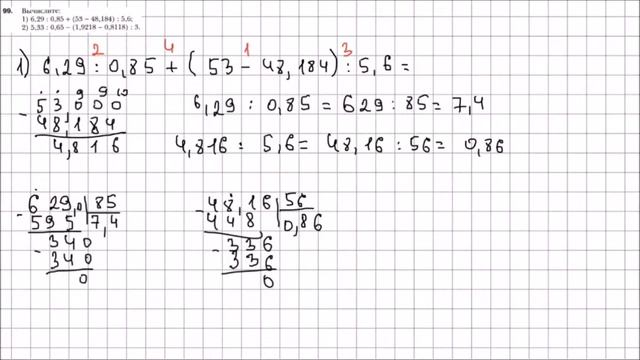 99. Вычислите:
1) 6,29 : 0,85 + (53 − 48,184) : 5,6;
2) 5,33 : 0,65 − (1,9218 − 0,8118) : 3.
2 4 1 3
1) 6,29 : 0,85 + ( 53 − 48,184) : 5,6 =
9 9 10
53000
− 48,184
4,816
6,29 : 0,85 = 629 : 85 = 7,4
4,816 : 5,6 = 48,16 : 56 = 0,86
− 629,0 85
595 7,4
− 340
340
0
− 48,16 56
448 0,86
− 336
336
0